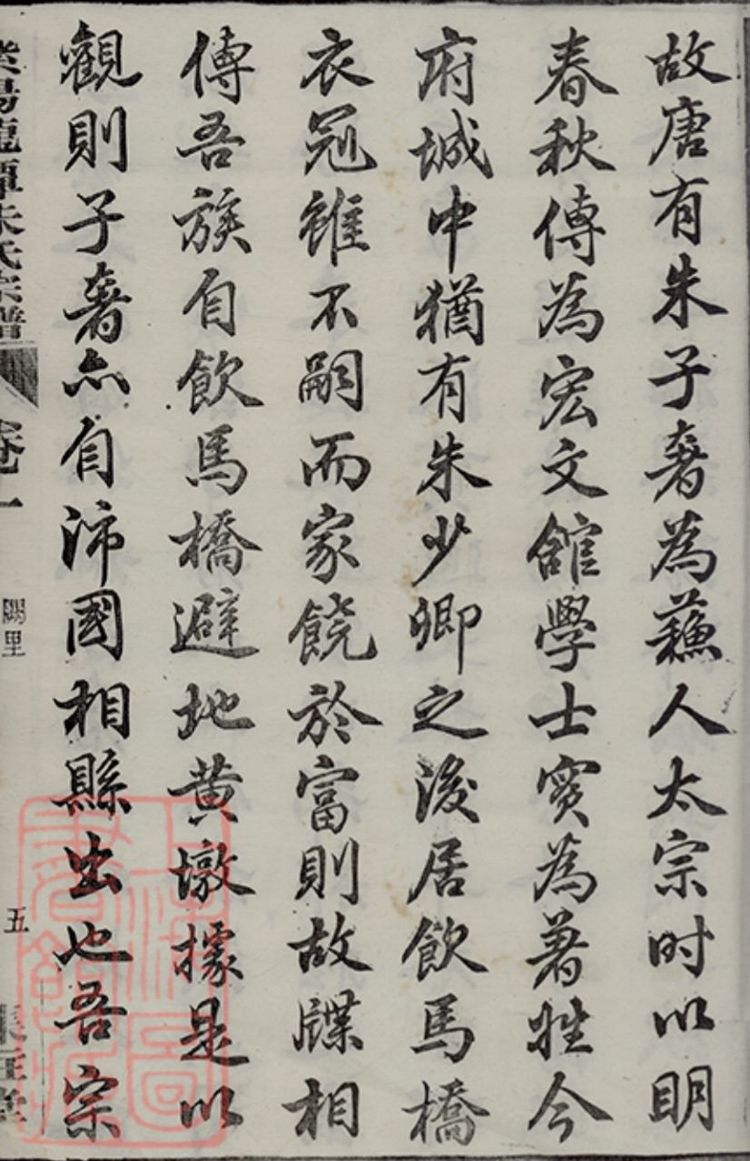 故唐有朱子奢為蘓人太宗时以明
春秋傳為宏文舘學士實為著姓今
府城中猶有朱少卿之後居飲馬橋
衣冠雖不嗣而家饒於富則故牒相
傳吾族自飲馬橋避地黄墩據是以
觀則子奢亦自沛國相縣出也吾宗
紫陽龍潭朱氏宗譜
卷一
闕里
五